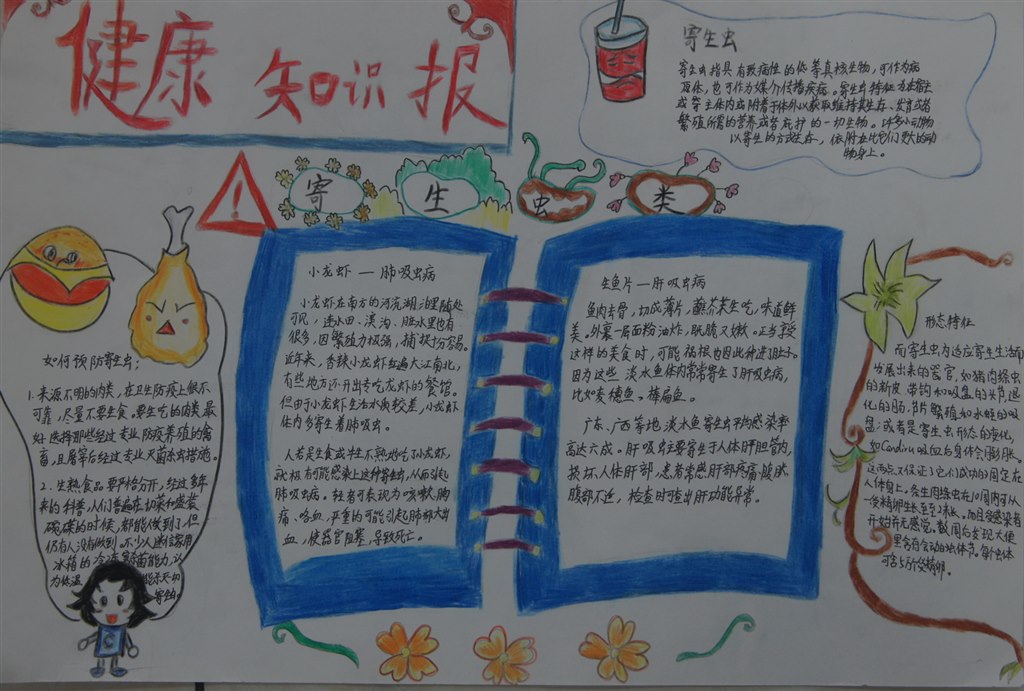 健康知识报
寄生虫
寄生虫指具有致病性的低等真核生物，可作为病
原体，也可作为媒介传播疾病。寄生虫特征为在宿主
或寄主体内或附着于体外以获取维持其生存、发育或者
繁殖所需的营养或者庇护的一切生物。许多小动物
以寄生的方式生存，依附在比它们更大的动
物身上。
寄生虫类
如何预防寄生虫：
1.来源不明的肉类，在卫生防疫上很不
可靠，尽量不要生食。要生吃的肉类最
好选择那些经过专业防疫养殖的禽
畜，且屠宰后经过专业灭菌杀虫措施。
2.生熟食品要严格分开，经过多年
来的科普，人们普遍在切菜和盛装
碗碟的时候，都能做到了，但
仍有人没有做到。不少人迷信家用
冰箱的冷冻杀菌能力，认
为低温
寄生虫。
小龙虾—肺吸虫病
小龙虾在南方的河流湖泊里随处
可见，连水田、溪沟、脏水里也有
很多，因繁殖力极强，捕捉十分容易。
近年来，香辣小龙虾红遍大江南北，
有些地方还开出专吃龙虾的餐馆。
但由于小龙虾生活水质较差，小龙虾
体内多寄生着肺吸虫。
人若是生食或半生不熟地吃了小龙虾，
就极有可能感染上这种寄生虫，从而引起
肺吸虫病。轻者可表现为咳嗽、胸
痛、咯血，严重的可能引起肺部大出
血，使器官阻塞，导致死亡。
生鱼片—肝吸虫病
鱼肉去骨，切成薄片，蘸芥茉生吃，味道鲜
美。外裹一层面粉油炸，既脆又嫩。正享受
这样的美食时，可能祸根也因此种进了肚子。
因为这些淡水鱼体内常常寄生了肝吸虫病，
比如麦穗鱼、棒扁鱼。
广东、广西等地淡水鱼寄生虫平均感染率
高达六成。肝吸虫主要寄生于人体肝胆管内，
损坏人体肝部，患者常感肝部疼痛、腹胀
腹部不适，检查时查出肝功能异常。
形态特征
而寄生虫为适应寄生生活而
发展出来的器官，如猪肉绦虫
的新皮、带钩和吸盘的头节、退
化的肠、节片繁殖，如水蛭的吸
盘；或者是寄生虫形态的变化，
如Candiru吸血后身体会膨胀。
这两点又保证了它们成功的固定在
人体身上。食生肉绦虫在10周内可从
一受精卵生长至2米长。而且受感染者
开始并无感觉。数周后发现大便
里含有会动的虫体节。每个虫体
可含5万个受精卵。